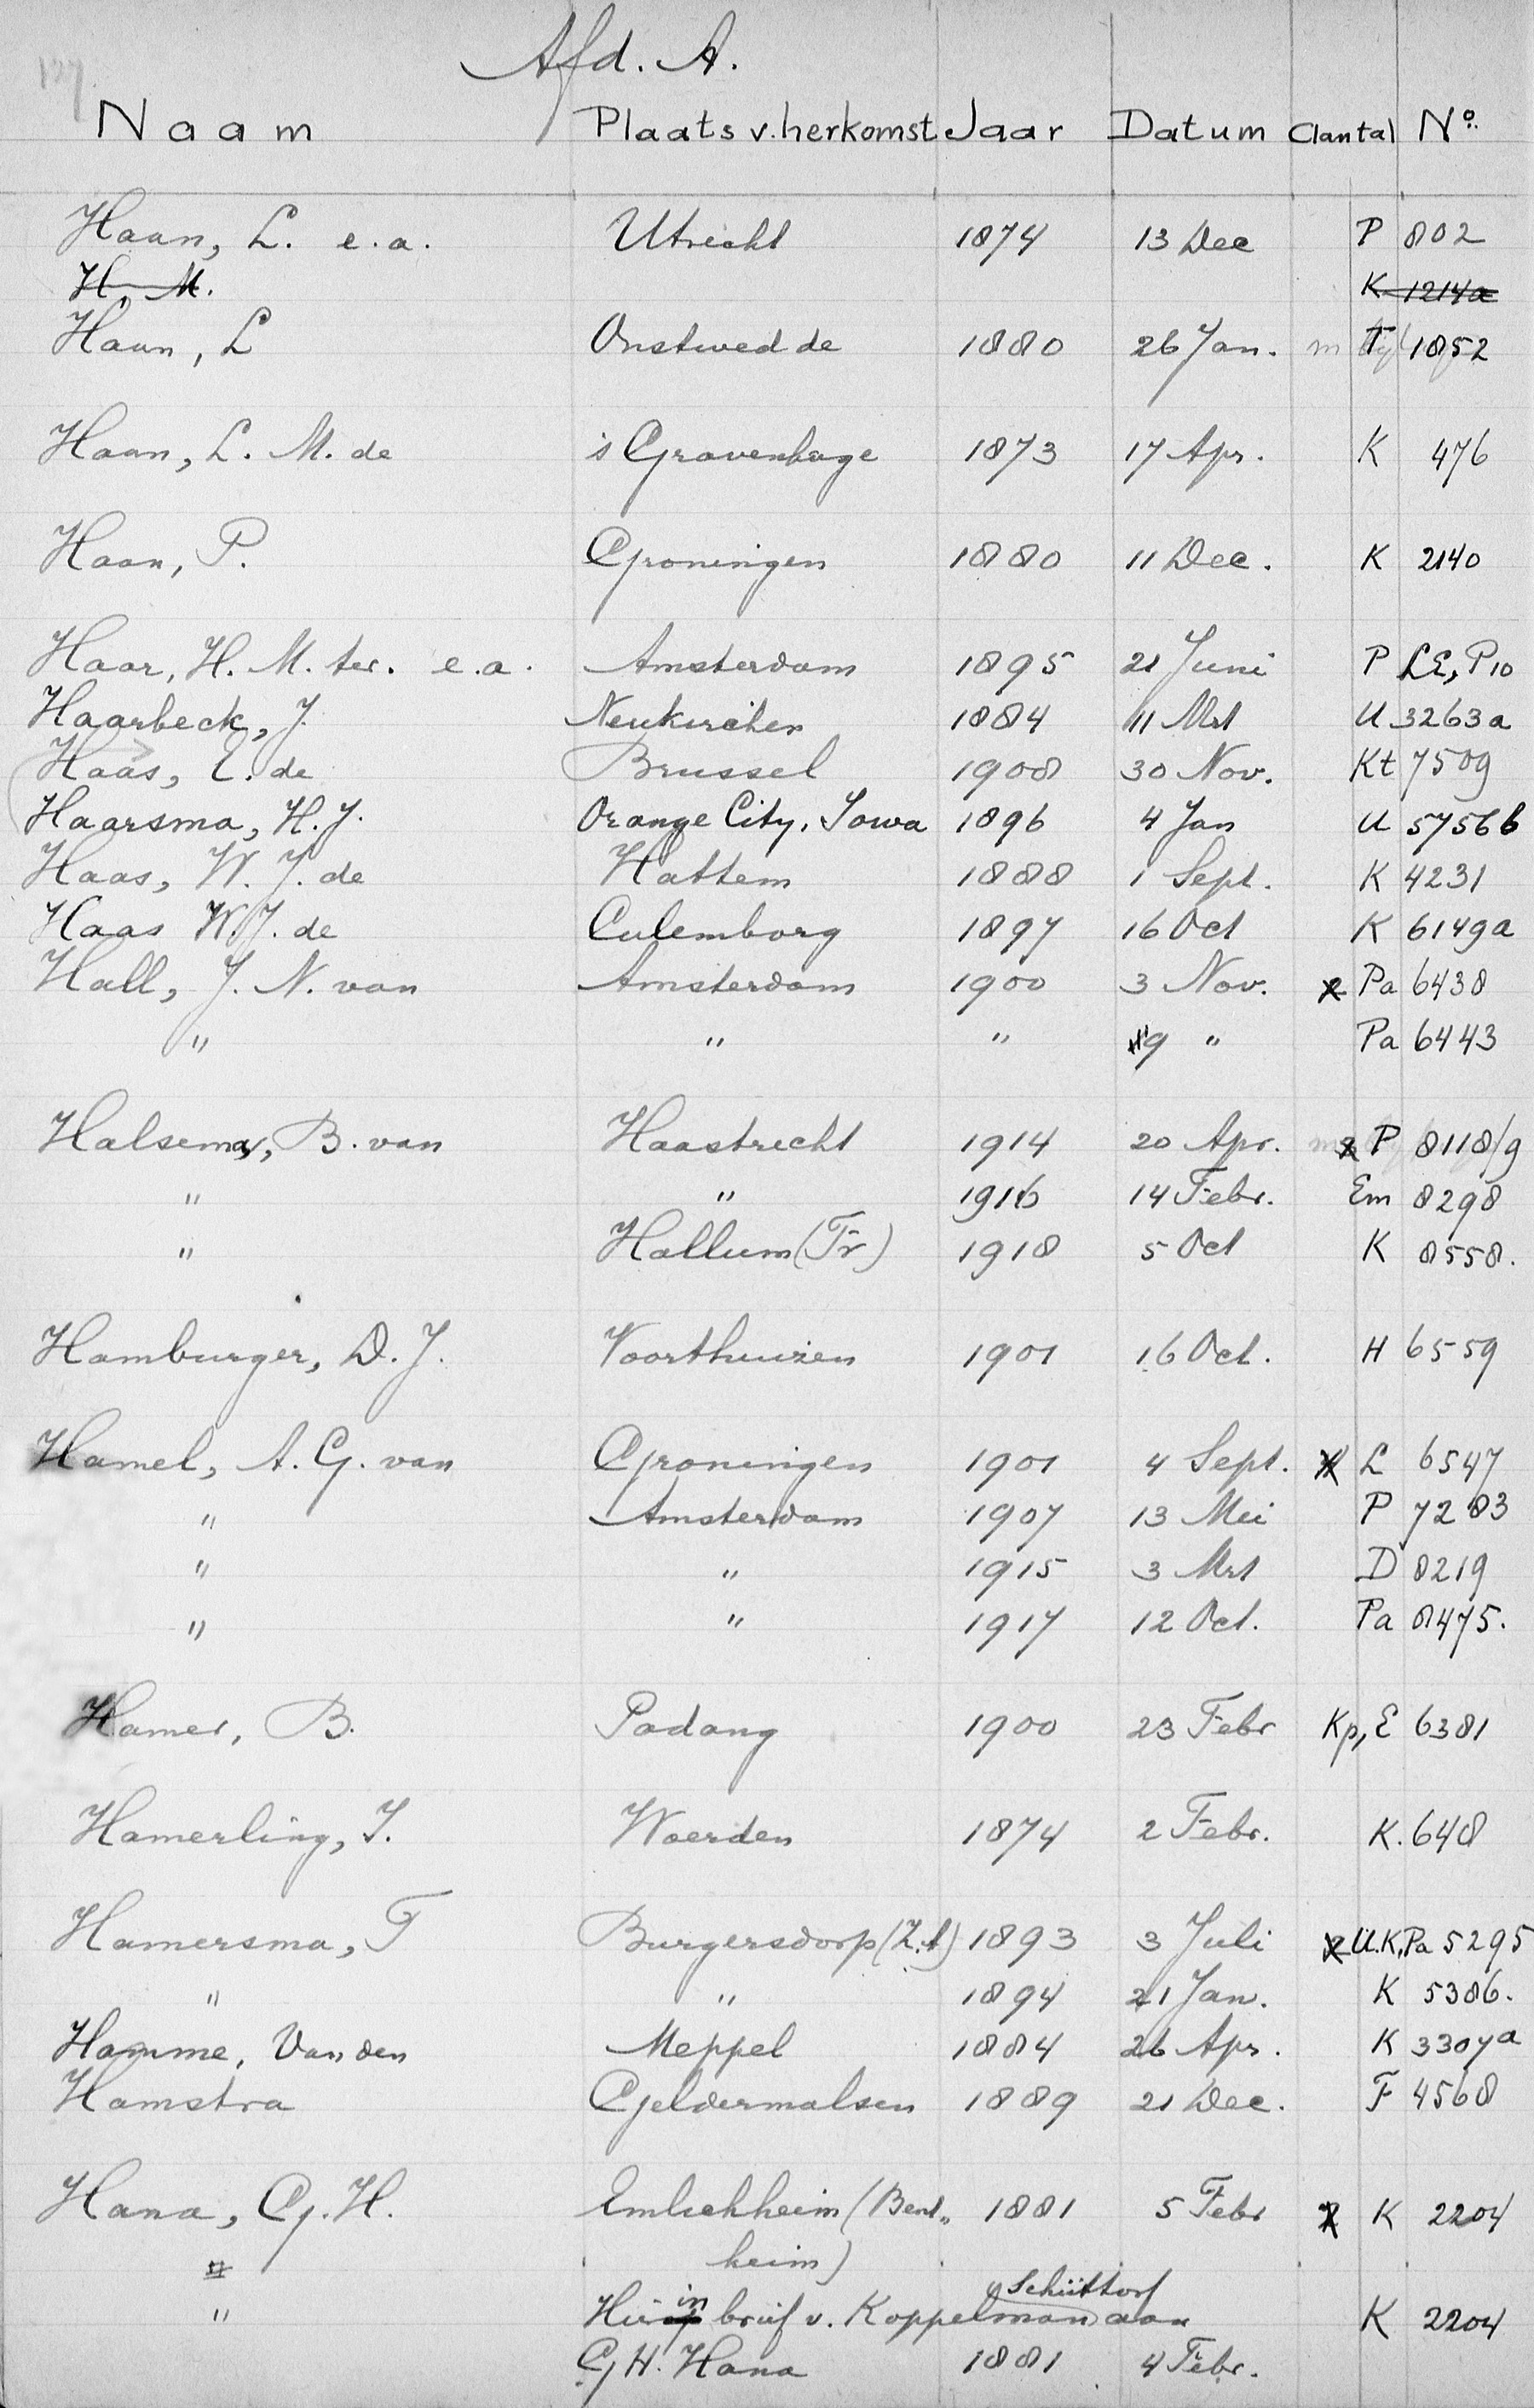 127
Afd. A.
Naam Plaats v. herkomst Jaar Datum Aantal No.
Haan, L. e.a. Utrecht 1874 13 Dec P 802
H, M. K 1214a
Haan, L Onstwedde 1880 26 Jan. T 1852
Haan, L. M. de 's Gravenhage 1873 17 Apr. K 476
Haan, P. Groningen 1880 11 Dec. K 2140
Haar, H. M. ter. e.a. Amsterdam 1895 21 Juni P LE, P10
Haarbeck, J. Neukirchen 1884 11 Mrt U 3263a
Haas, E. de Brussel 1908 30 Nov. Kt 7509
Haarsma, H. J. Orange City, Iowa 1896 4 Jan U 5756b
Haas, W. J. de Hattem 1888 1 Sept. K 4231
Haas W. J. de Culemborg 1897 16 Oct K 6149a
Hall, J. N. van Amsterdam 1900 3 Nov. 2 Pa 6438
" " " 9 " Pa 6443
Halsema, B. van Haastrecht 1914 20 Apr. P 8118/9
" " 1916 14 Febr. Em 8298
" Hallum (Fr) 1918 5 Oct K 8558.
Hamburger, D. J. Voorthuizen 1901 16 Oct. H 6559
Hamel, A. G. van Groningen 1901 4 Sept. L 6547
" Amsterdam 1907 13 Mei P 7283
" " 1915 3 Mrt D 8219
" " 1917 12 Oct. Pa 8475.
Hamer, B. Padang 1900 23 Febr Kp, E 6381
Hamerling, J. Woerden 1874 2 Febr. K. 648
Hamersma, T Burgersdorp (Z.A) 1893 3 Juli 2 U.K,Pa 5295
" " 1894 21 Jan. K 5386.
Hamme, Van den Meppel 1884 26 Apr. K 3307a
Hamstra Geldermalsen 1889 21 Dec. F 4568
Hana, G. H. Emlichheim (Bent„ 1881 5 Febr 2 K 2204
" heim)
Schüttorf
" Hie in brief v. Koppelman aan K 2204
G H. Hana 1881 4 Febr.